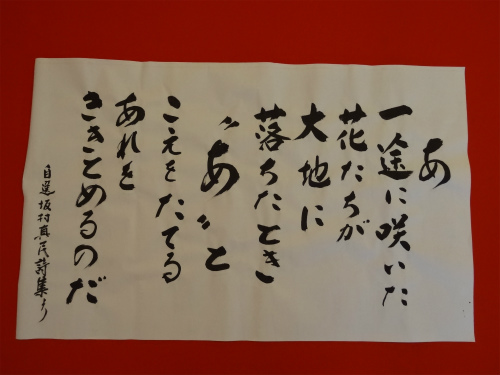 あ
一途に咲いた
花たちが
大地に
落ちたとき
〝あ〟と
こえをたてる
あれを
ききとめるのだ
自選坂村真民詩集より